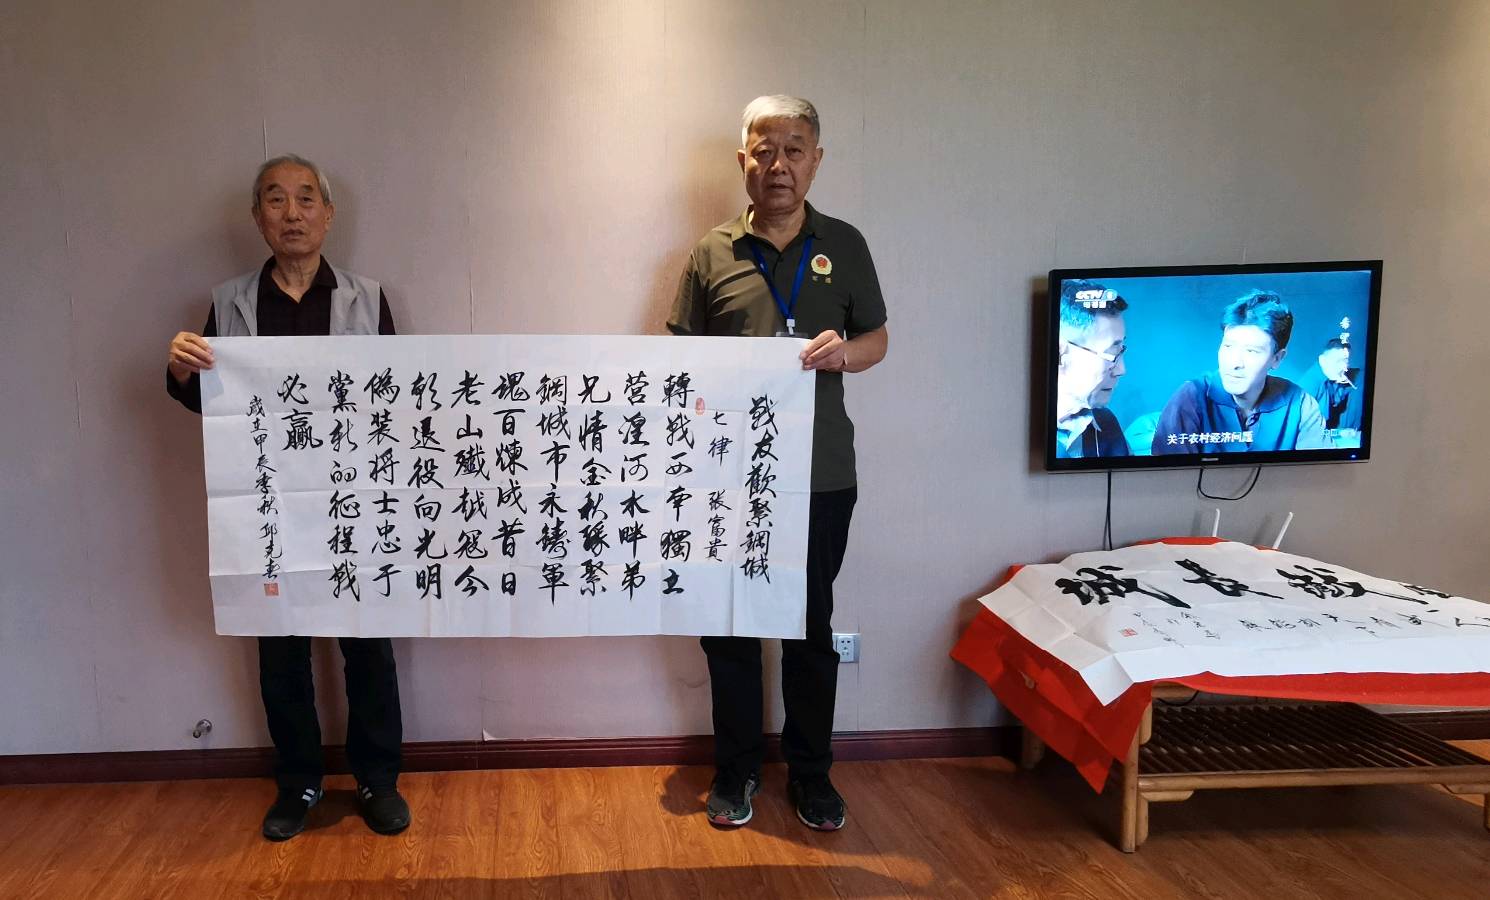 戰友歡聚鋼城
七律 张富貴
轉戰西南獨立
营湟河水畔弟
兄情金秋豫聚
鋼城市永鑄軍
魂百煉成昔日
老山殲越冦今
朝退役向光明
偽装将士忠于
黨新的征程戰
必贏
歲在甲辰季秋 邱克春
CCTV 1
希望
关于农村经济问题
城長鐵